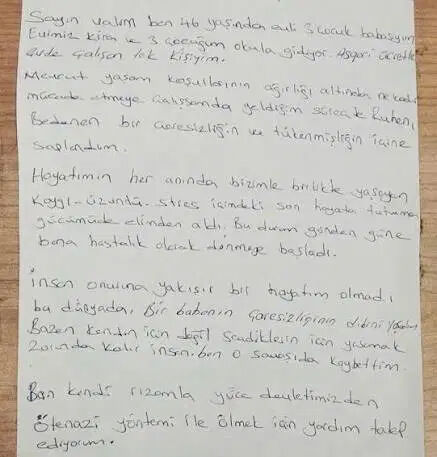 Sayın valim ben 46 yaşından evli 3 çocuk babasıyım
Evimiz kira ve 3 çocuğum okula gidiyor. Asgari ücretle
evde çalışan tek kişiyim.
Mevcut yaşam koşullarının ağırlığı altında ne kadar
mücadele etmeye çalışsamda geldiğim süreçte Ruhen,
Bedenen bir çaresizliğin ve tükenmişliğin içine
saplandım.
Hayatımın her anında bizimle birlikte yaşayan
Kaygı-üzüntü-stres içimdeki son hayata tutunma
gücümüde elimden aldı. Bu durum günden güne
bana hastalık olarak dönmeye başladı.
insan onuruna yakışır bir hayatım olmadı
bu dünyada, Bir babanın Çaresizliğinin dibini
Bazen kendin için değil sevdiklerin için yaşamak
Zorunda kalır insan. ben o savaşıda kaybettim.
Ben kendi rızamla yüce devletimizden
Ötenazi yöntemi ile ölmek için yardım talep
ediyorum.